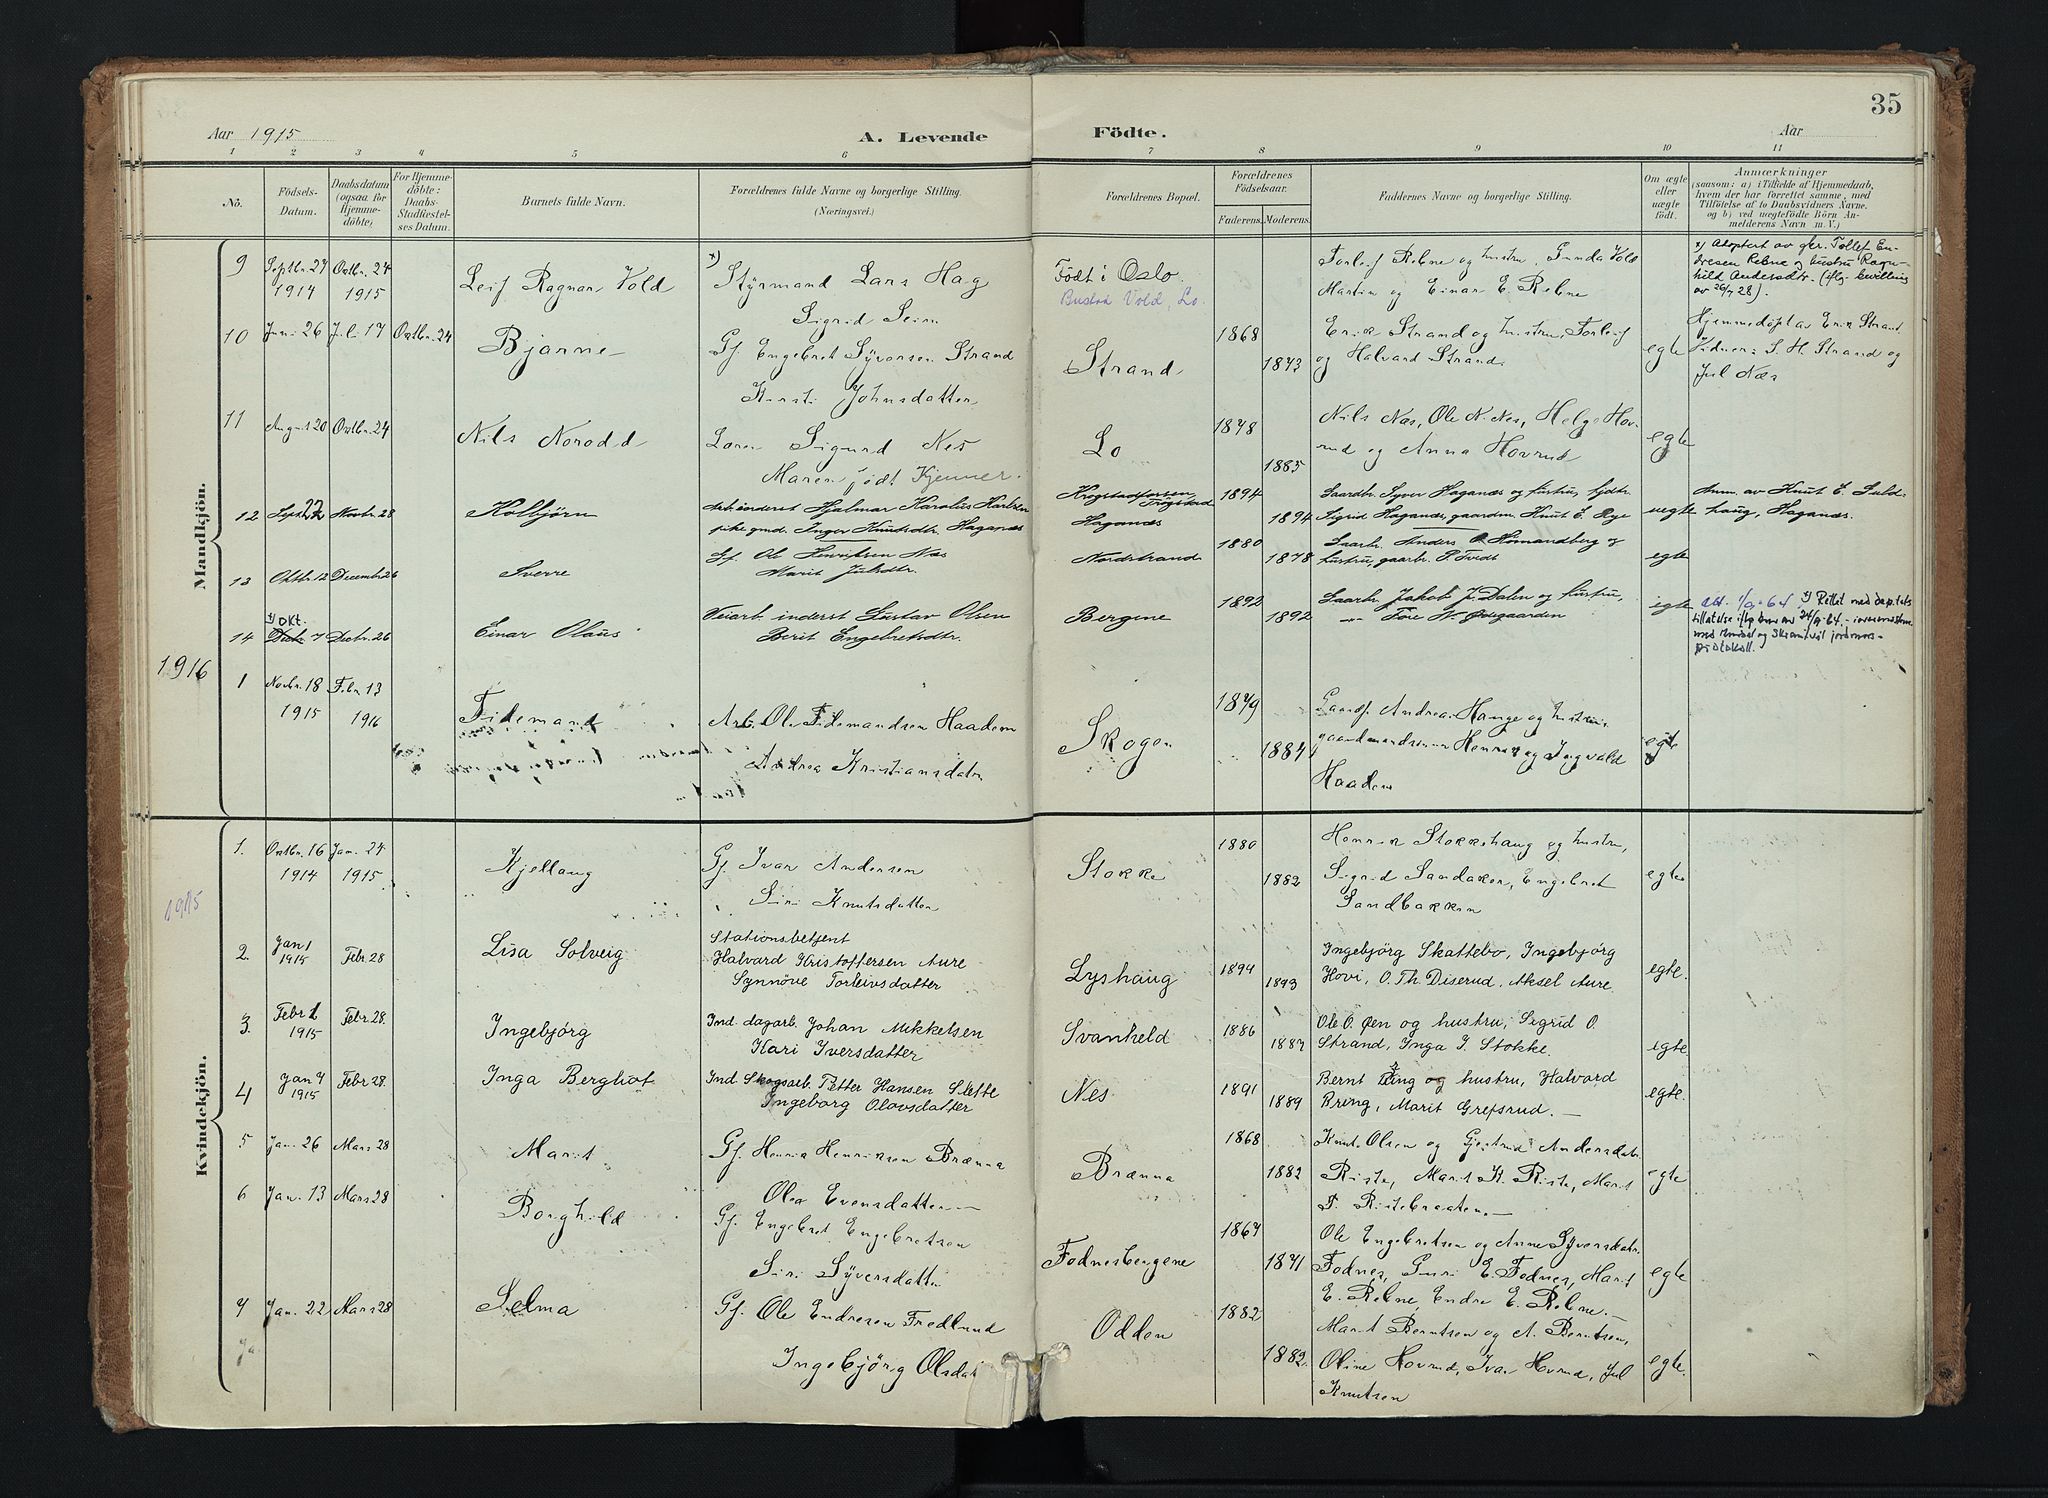 35
Aar 1915
A. Levende
Födte.
Aar
1 2 3 4 5 6 7 8 9 10 11
No.
Födsels-
Datum.
Daabsdatum
(ogsaa for
Hjemme-
döbte)
For Hjemme-
döbte:
Daabs-
Stadfæstel-
ses Datum.
Barnets fulde Navn.
Forældrenes fulde Navne og borgerlige Stilling.
(Næringsvei.)
Forældrenes Bopæl.
Forældrenes
Födselsaar.
Faderens. Moderens.
Faddernes Navne og borgerlige Stilling.
Om ægte
eller
uægte
födt.
Anmærkninger
(saasom: a) i Tilfælde af Hjemmedaab,
hvem der har forrettet samme, med
Tilföielse af to Daabsvidners Navne.
og b) ved uægtefödte Börn An-
melderens Navn m. V.)
Mandkjön.
9
Septbr. 27
1914
Octbr. 24
1915
Leif Ragnar Vold
x) Styrmand Lars Hag
Sigrid Seim
Født i Oslo.
Bustad Vold, Lo.
Torleif Rebne og hustru, Gunda Vold
Martin og Einar E. Rebne
x) Adoptert av gbr. Tollef En-
dresen Rebne og hustru Ragn-
hild Andersdtr. (iflg. bevilling
av 26/7 28).
10
Juni 26
Jul. 17
Octbr. 24
Bjarne
Gf. Engebret Syversen Strand
Kirsti Johnsdatter
Strand
1868
1873
Erik Strand og hustru, Torleif
og Halvard Strand.
egte
Hjemmedøpt av Erik Strand
Vidner: S. H. Strand og
Jul Næs
11
August 20
Octbr. 24
Nils Norodd
Lærer Sigurd Nes
Maren født Kjenner.
Lo
1878
1885
Nils Næs, Ole N. Nes, Helge Hov-
rud og Anna Hovrud
egte
12
Sept. 22
Novbr. 28
Kolbjörn
Arb. inderst Hjalmar Karolus Karlsen
pike gmd. Inger Knutsdtr. Haganæs
Krogstadfossen, Trögstad
Haganæs
1894
1894
Gaardbr. Syver Haganæs og hustru, fjdtr.
Sigrid Haganæs, gaardm. Knut E. Rye
uegte
Anm. av Knut E. Guld-
haug, Haganæs.
13
Oktbr. 12
Decembr. 26
Sverre
Gf. Ole Henriksen Næs
Marit Julsdtr.
Nordstrand
1880
1878
Gaarbr. Anders O. Homandberg og
hustru, gaarbr. P. Tvedt
egte
14
x) Okt.
Decbr. 7
Decbr. 26
Einar Olaus
Veiarb. inderst Gustav Olsen
Berit Engebretsdtr.
Bergene
1892
1892
Gaarbr. Jakob J. Dalen og hustru,
Tore H. Øigaarden
egte
x) Rettet med dep.tets
tillatelse
med
protokoll.
1916
1
Novbr. 18
1915
Febr. 13
1916
Tidemand
Arb. Ole Tidemandsen Haadem
Andrea Kristiansdatter
Skogen
1879
1884
Gaardf. Andreas Hange og hustru,
gaardmandsønner Henrik og Ingvald
Haadem
egte
Kvindekjön.
1915
1.
Octbr. 16
1914
Jan. 24
1915
Kjellaug
Gf. Ivar Andersen
Siri Knutsdatter
Stokke
1880
1882
Henrik Stokkehaug og hustru,
Sigrid Sandaker, Engebret
Sandbakken
egte
2.
Jan 1
1915
Febr. 28
Lisa Solveig
Stationsbetjent
Halvard Kristoffersen Aure
Synnöve Torleivsdatter
Lyshaug
1894
1893
Ingebjörg Skattebo, Ingebjörg
Hovi, O. Th. Diserud, Aksel Aure
egte.
3.
Febr 1
1915
Febr. 28.
Ingebjörg
Ind. dagarb. Johan Mikkelsen
Kari Iversdatter
Svanheld
1886
1887
Ole O. Øen og hustru, Sigrid O.
Strand, Inga J. Stokke.
egte.
4
Jan 4
1915
Febr 28.
Inga Berghot
Ind. Skogsarb. Petter Hansen Slette
Ingeborg Olavsdatter
Nes
1891
1889
Bernt Bring og hustru, Halvard
Breng, Marit Grefsrud. —
egte.
5
Jan. 26
Mars 28
Marit
Gf. Henrik Henriksen Brænna
Olea Evensdatter —
Brænna
1868
1882
Knut Olsen og Gjertrud Andersdatr.
Riste, Marit K. Riste, Marit
P. Ristebraaten. —
egte
6
Jan. 13
Mars 28
Borghild
Gf. Engebret Engebretsen
Siri Syversdatter
Fodnesbergene
1867
1871
Ole Engebretsen og Anne Syversdatr.
Fodnes, Guri E. Fodnes, Marit
E. Rebne, Endre E. Rebne. —
egte
7
Jan. 22
Mars 28
Selma
Gf. Ole Endresen Fredlund
Ingebjörg Olsdat
Odden
1882
1882.
Marit Berntsen og A. Berntsen,
Oline Hovrud, Ivar Hovrud, Jul
Knutsen
egte.
Ja